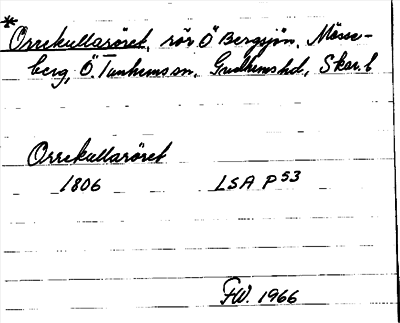 * Orrekullaröret, rör Ö Bergsjön, Mösse-
berg, Ö. Tunhems sn, Gudhems hd, Skar. l
Orrekullaröret
1806 LSA P 53
FW. 1966